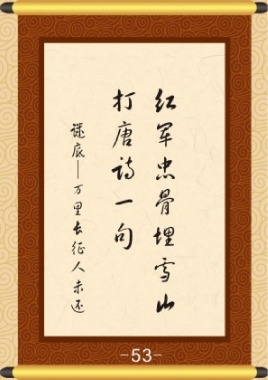 红军忠骨埋雪山
打唐诗一句
谜底—万里长征人未还
-53-